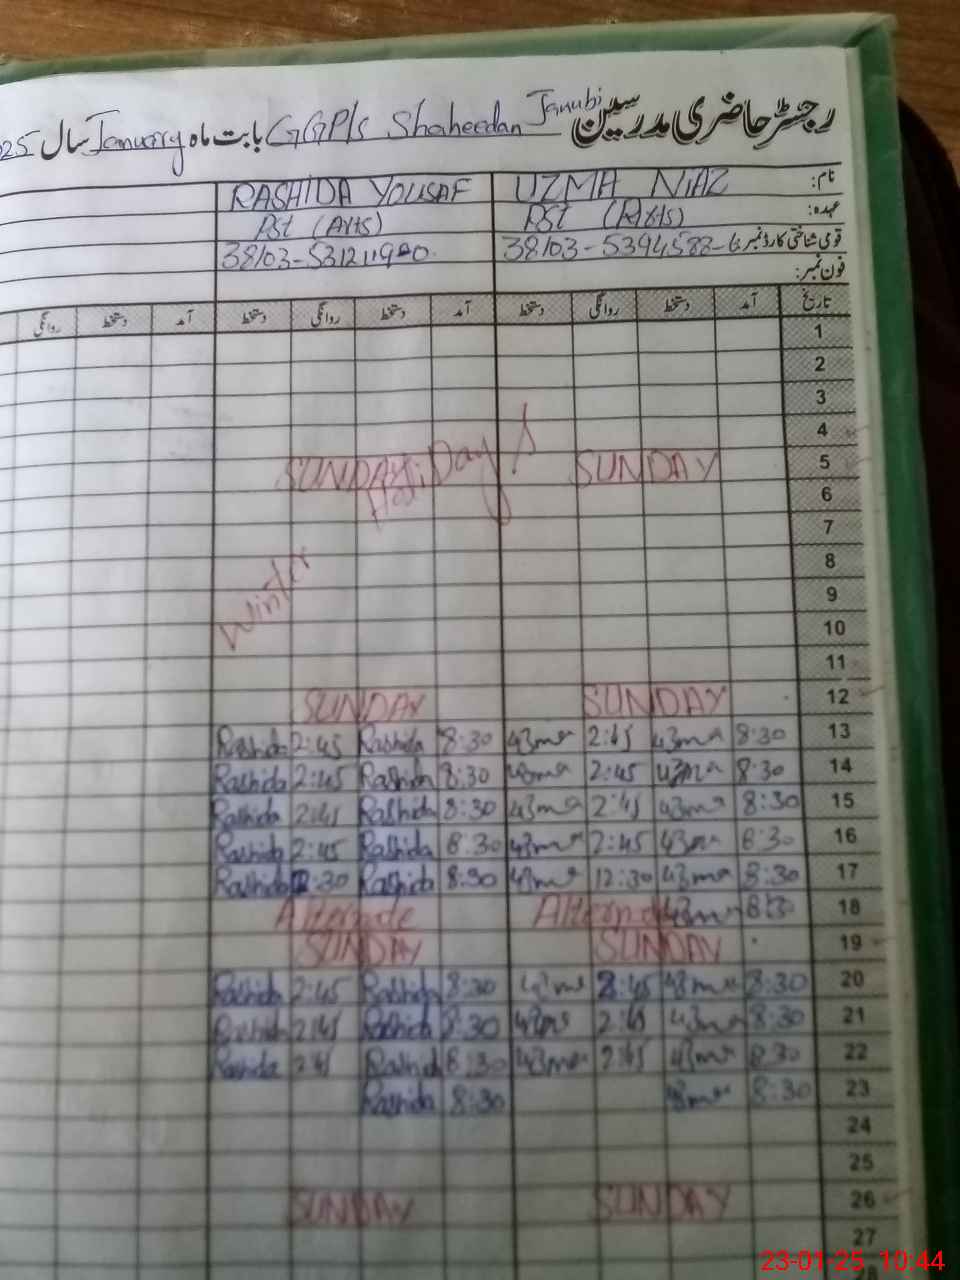 رجسٹر حاضری مدرسین GGP/s Shaheedan Janubi بابت ماہ January سال 025
نام: UZMA NIAZ RASHIDA YOUSAF
عہدہ: PST (Arts) PST (Arts)
قومی شناختی کارڈ نمبر: 38103-5394588-6 38103-531211900
فون نمبر:
تاریخ آمد دستخط روانگی دستخط آمد دستخط روانگی دستخط آمد دستخط روانگی
1
2
3
4
5 SUNDAY SUNDAY
Winter HoliDays
6
7
8
9
10
11
12 SUNDAY SUNDAY
13 8:30 2:45 8:30 Rashida 2:45 Rashida
14 8:30 2:45 8:30 Rashida 2:45 Rashida
15 8:30 2:45 8:30 Rashida 2:45 Rashida
16 8:30 2:45 8:30 Rashida 2:45 Rashida
17 8:30 12:30 8:30 Rashida :30 Rashida
18 8:30 Alternate
19 SUNDAY SUNDAY
20 8:30 2:45 8:30 Rashida 2:45 Rashida
21 8:30 2:45 8:30 Rashida 2:45 Rashida
22 8:30 2:45 8:30 Rashida 2:45 Rashida
23 8:30 8:30 Rashida
24
25
26 SUNDAY SUNDAY
27
23-01-25 10:44